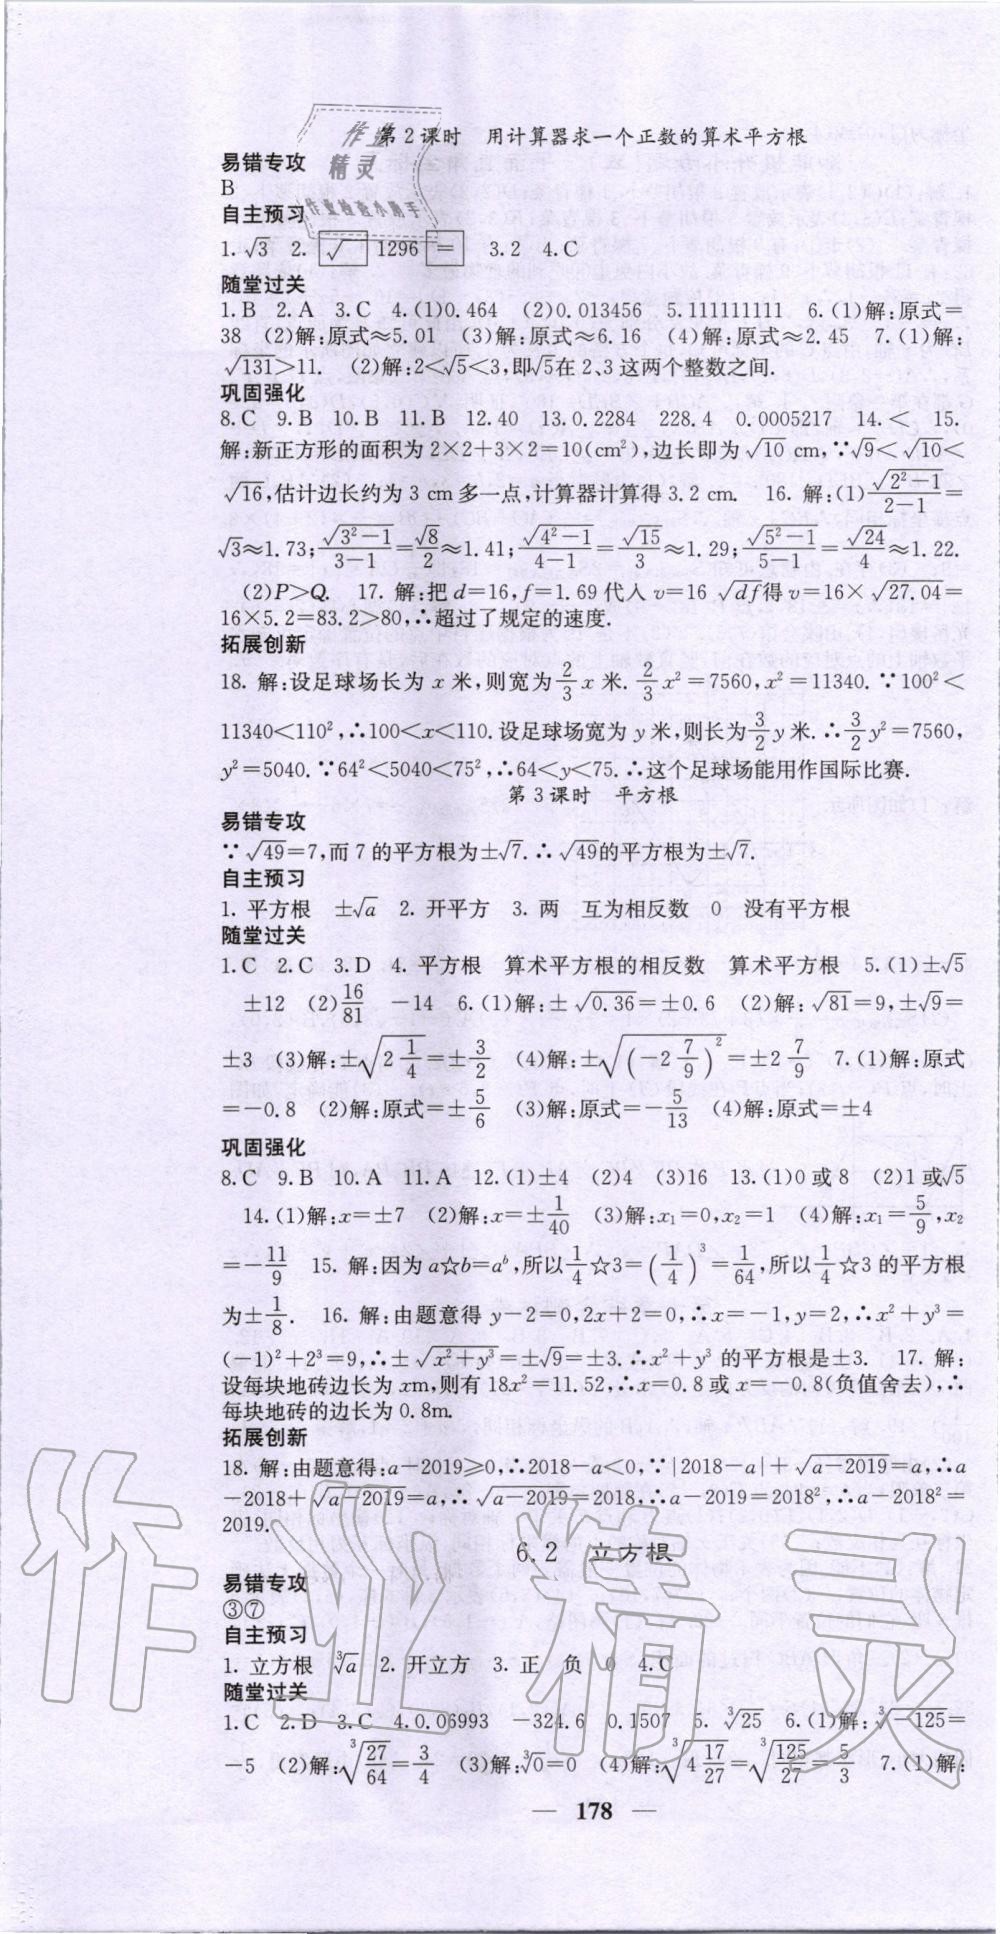 第2课时　用计算器求一个正数的算术平方根
作业
精灵
作业检查小助手
易错专攻
B
自主预习
1. √3　2. √ 1296 =　3. 2　4. C
随堂过关
1. B　2. A　3. C　4. (1)0. 464　(2)0. 013456　5. 111111111　6. (1)解:原式=
38　(2)解:原式≈5. 01　(3)解:原式≈6. 16　(4)解:原式≈2. 45　7. (1)解:
√131>11.　(2)解:2<√5<3,即√5在 2、3 这两个整数之间.
巩固强化
8. C　9. B　10. B　11. B　12. 40　13. 0. 2284　228. 4　0. 0005217　14. <　15.
解:新正方形的面积为 2×2+3×2=10(cm²),边长即为 √10 cm,∵√9<√10<
√16,估计边长约为 3 cm 多一点,计算器计算得 3. 2 cm.　16. 解:(1) √(2²-1)/(2-1) =
√3≈1. 73; √(3²-1)/(3-1) = √8/2 ≈1. 41; √(4²-1)/(4-1) = √15/3 ≈1. 29; √(5²-1)/(5-1) = √24/4 ≈1. 22.
(2)P>Q.　17. 解:把 d=16,f=1. 69 代入 v=16 √df 得 v=16×√27. 04=
16×5. 2=83. 2>80,∴超过了规定的速度.
拓展创新
18. 解:设足球场长为 x 米,则宽为 2/3 x 米. 2/3 x²=7560,x²=11340. ∵100²<
11340<110²,∴100<x<110. 设足球场宽为 y 米,则长为 3/2 y 米. ∴ 3/2 y²=7560,
y²=5040. ∵64²<5040<75²,∴64<y<75. ∴这个足球场能用作国际比赛.
第3课时　平方根
易错专攻
∵ √49=7,而 7 的平方根为±√7. ∴ √49的平方根为±√7.
自主预习
1. 平方根　±√a　2. 开平方　3. 两　互为相反数　0　没有平方根
随堂过关
1. C　2. C　3. D　4. 平方根　算术平方根的相反数　算术平方根　5. (1)±√5
±12　(2) 16/81　-14　6. (1)解:±√0. 36=±0. 6　(2)解:√81=9,±√9=
±3　(3)解:±√(2 1/4)=± 3/2　(4)解:±√((-2 7/9)²)=±2 7/9　7. (1)解:原式
=-0. 8　(2)解:原式=± 5/6　(3)解:原式=- 5/13　(4)解:原式=±4
巩固强化
8. C　9. B　10. A　11. A　12. (1)±4　(2)4　(3)16　13. (1)0 或 8　(2)1 或√5
14. (1)解:x=±7　(2)解:x=± 1/40　(3)解:x₁=0,x₂=1　(4)解:x₁= 5/9 ,x₂
=- 11/9　15. 解:因为 a☆b=aᵇ,所以 1/4 ☆3=(1/4)³= 1/64 ,所以 1/4 ☆3 的平方根
为± 1/8 .　16. 解:由题意得 y-2=0,2x+2=0,∴x=-1,y=2,∴x²+y³=
(-1)²+2³=9,∴±√(x²+y³)=±√9=±3. ∴x²+y³ 的平方根是±3.　17. 解:
设每块地砖边长为 xm,则有 18x²=11. 52,∴x=0. 8 或 x=-0. 8(负值舍去),∴
每块地砖的边长为 0. 8m.
拓展创新
18. 解:由题意得:a-2019≥0,∴2018-a<0,∵|2018-a|+√(a-2019)=a,∴a
-2018+√(a-2019)=a,∴√(a-2019)=2018,∴a-2019=2018²,∴a-2018²=
2019.
6. 2　立方根
易错专攻
③⑦
自主预习
1. 立方根　∛a　2. 开立方　3. 正　负　0　4. C
随堂过关
1. C　2. D　3. C　4. 0. 06993　-324. 6　0. 1507　5. ∛25　6. (1)解:∛-125=
-5　(2)解:∛(27/64)= 3/4　(3)解:∛0=0　(4)解:∛(4 17/27)=∛(125/27)= 5/3　7. (1)解:
— 178 —
作业精灵